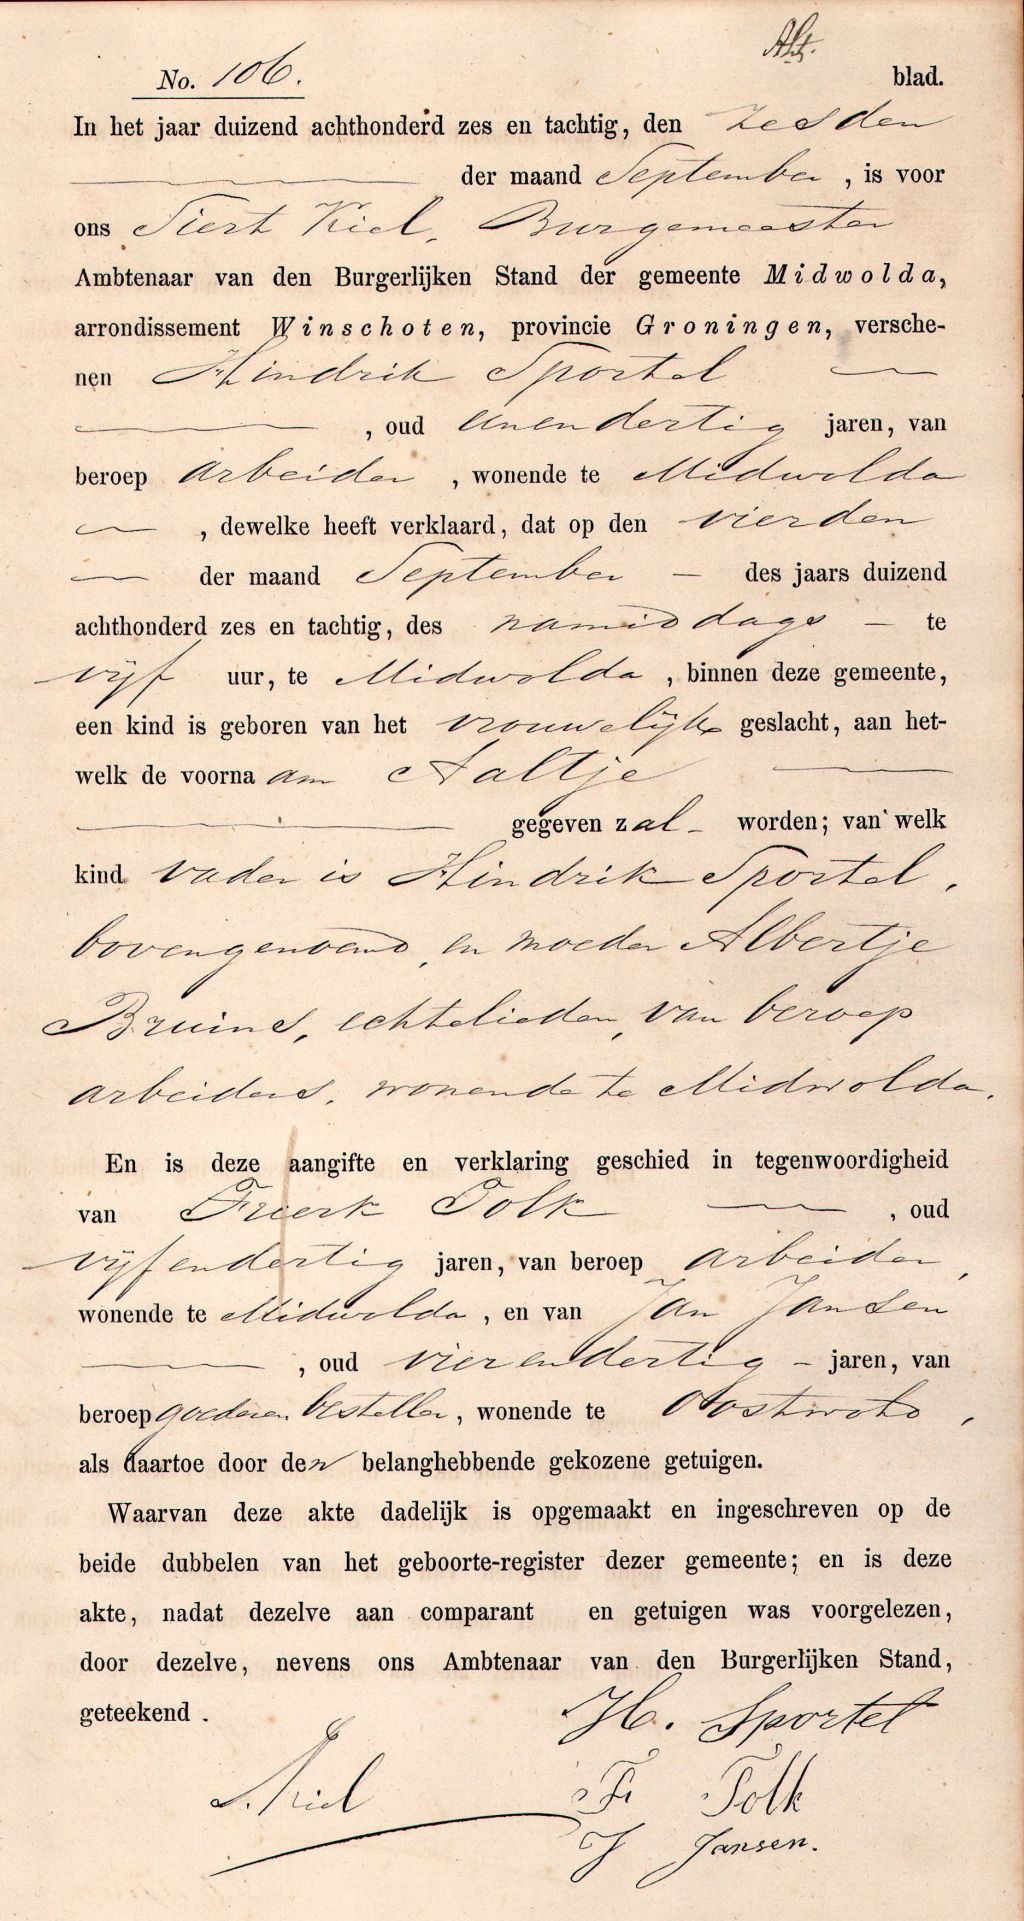 No. 106. blad.
In het jaar duizend achthonderd zes en tachtig, den zesden
der maand September, is voor
ons Siert Kiel, Burgemeester
Ambtenaar van den Burgerlijken Stand der gemeente Midwolda,
arrondissement Winschoten, provincie Groningen, versche-
nen Hindrik Sportel
, oud eenendertig jaren, van
beroep arbeider, wonende te Midwolda
, dewelke heeft verklaard, dat op den vierden
der maand September – des jaars duizend
achthonderd zes en tachtig, des namiddags – te
vijf uur, te Midwolda, binnen deze gemeente,
een kind is geboren van het vrouwelijke geslacht, aan het-
welk de voornaam Aaltje
gegeven zal worden; van welk
kind vader is Hindrik Sportel,
bovengenoemd, en moeder Albertje
Bruins, echtelieden, van beroep
arbeiders, wonende te Midwolda.
En is deze aangifte en verklaring geschied in tegenwoordigheid
van Freerk Tolk, oud
vijfendertig jaren, van beroep arbeider,
wonende te Midwolda, en van Jan Jansen
, oud vierendertig – jaren, van
beroep goederenbesteller, wonende te Oostwold,
als daartoe door den belanghebbende gekozene getuigen.
Waarvan deze akte dadelijk is opgemaakt en ingeschreven op de
beide dubbelen van het geboorte-register dezer gemeente; en is deze
akte, nadat dezelve aan comparant en getuigen was voorgelezen,
door dezelve, nevens ons Ambtenaar van den Burgerlijken Stand,
geteekend.
H. Sportel
S. Kiel F Tolk
J Jansen.